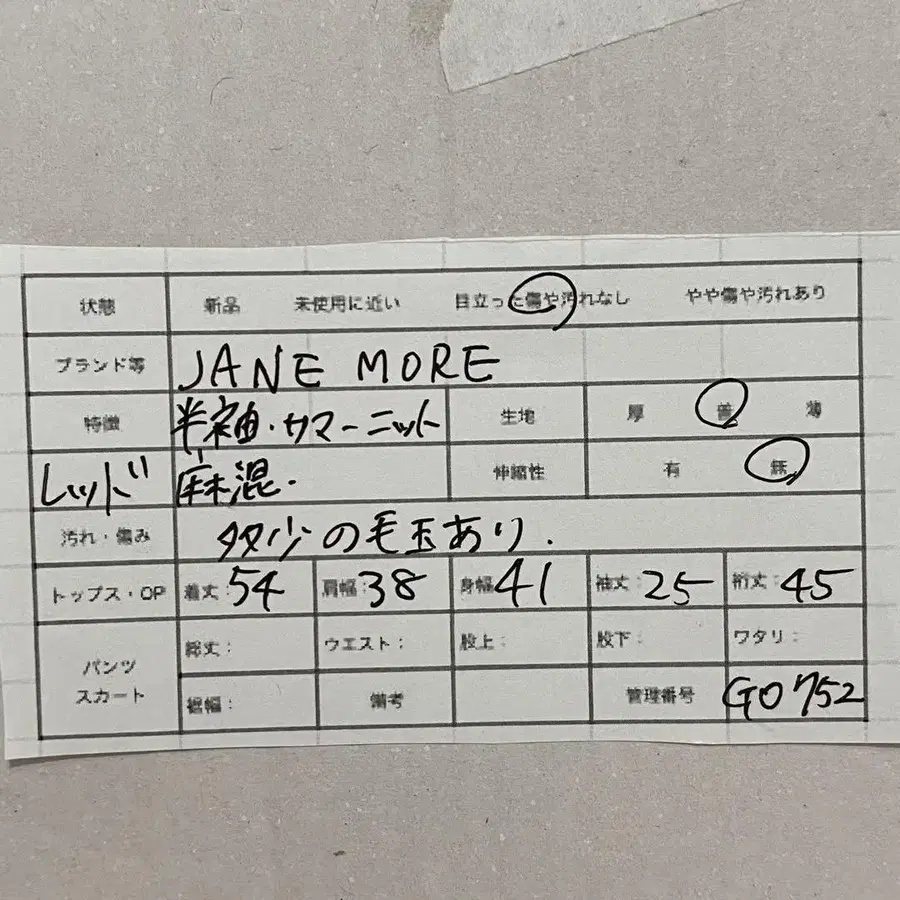 状態 新品 未使用に近い 目立った傷や汚れなし やや傷や汚れあり
ブランド等 JANE MORE
特徴 半袖・サマーニット 生地 厚 普 薄
レッド 麻混. 伸縮性 有 無
汚れ・傷み 多少の毛玉あり.
トップス・OP 着丈:54 肩幅:38 身幅:41 袖丈:25 裄丈:45
パンツ スカート 総丈: ウエスト: 股上: 股下: ワタリ:
裾幅: 備考 管理番号 G0752